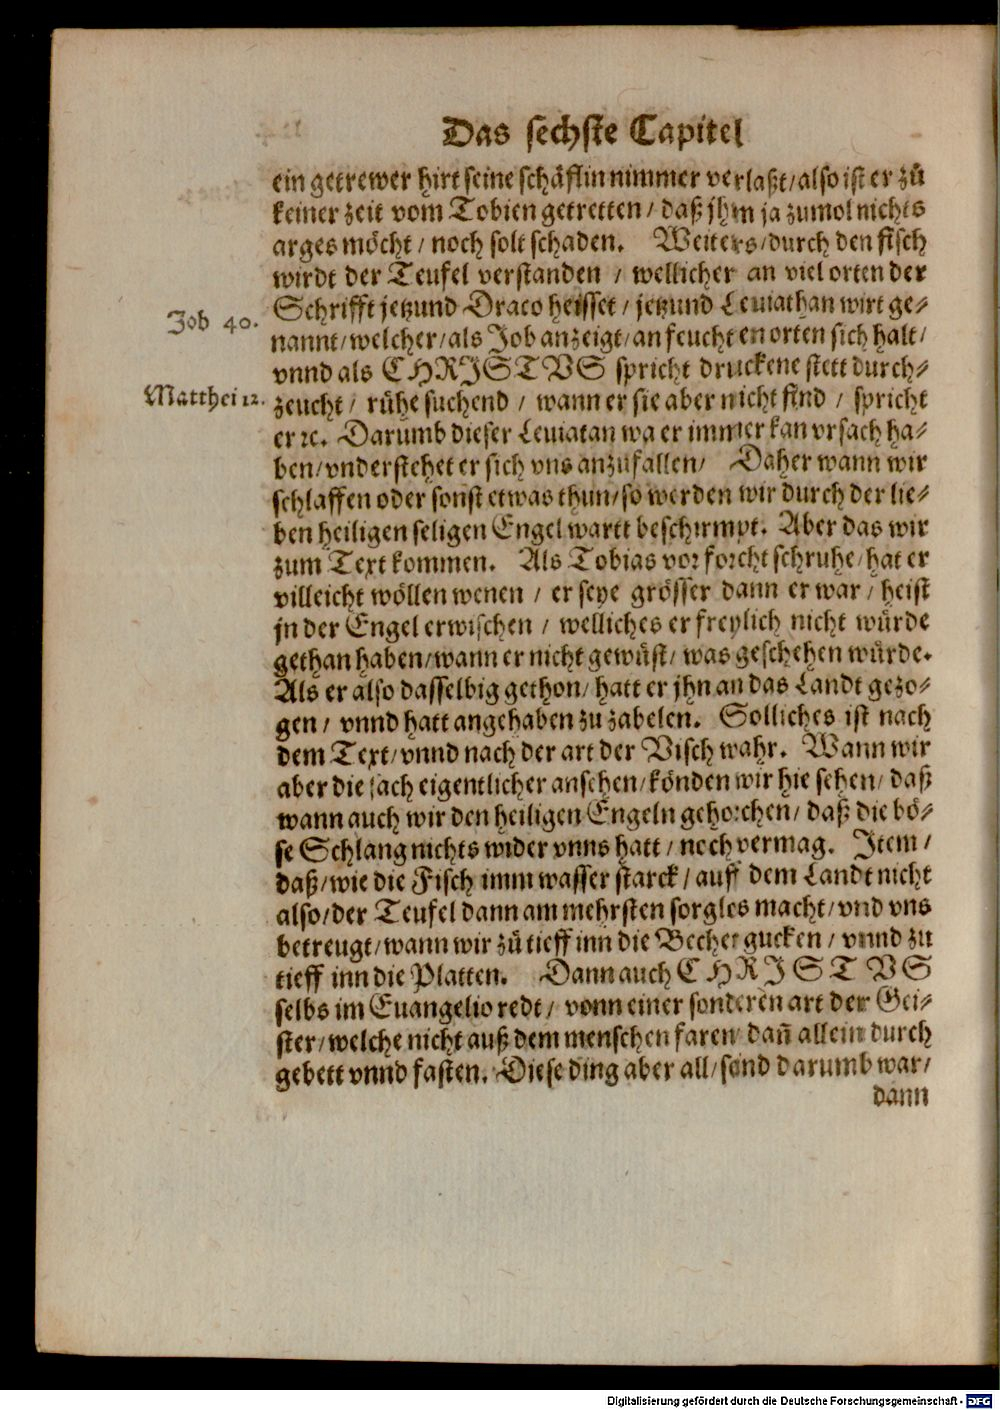 Das sechste Capitel
ein getrewer hirt seine schäflin nimmer verlaßt/ also ist er zů
keiner zeit vom Tobien getretten / daß jhm ja zumol nichts
arges möcht / noch solt schaden. Weiters/ durch den fisch
wirdt der Teufel verstanden / wellicher an viel orten der
Schrifft jetzund Draco heisset / jetzund Leuiathan wirt ge-
Job 40.
nannt/ welcher/ als Job anzeigt/ an feuchten orten sich halt/
vnnd als CHRISTVS spricht druckene stett durch-
Matthei 12.
zeucht / růhe suchend / wann er sie aber nicht find / spricht
er ꝛc. Darumb dieser Leuiatan wa er immer kan vrsach ha-
ben/ vnderstehet er sich vns anzufallen/ Daher wann wir
schlaffen oder sonst etwas thun/ so werden wir durch der lie-
ben heiligen seligen Engel wartt beschirmpt. Aber das wir
zum Text kommen. Als Tobias vor forcht schruhe/ hat er
villeicht wöllen wenen / er seye grösser dann er war / heist
jn der Engel erwischen / welliches er freylich nicht würde
gethan haben/ wann er nicht gewüst/ was geschehen würde.
Als er also dasselbig gethon/ hatt er jhn an das Landt gezo-
gen / vnnd hatt angehaben zu zabelen. Solliches ist nach
dem Text/ vnnd nach der art der Visch wahr. Wann wir
aber die sach eigentlicher ansehen/ könden wir hie sehen/ daß
wann auch wir den heiligen Engeln gehorchen/ daß die bö-
se Schlang nichts wider vnns hatt / noch vermag. Item /
daß/ wie die Fisch imm wasser starck / auff dem Landt nicht
also/ der Teufel dann am mehrsten sorglos macht/ vnd vns
betreugt/ wann wir zů tieff inn die Becher gucken / vnnd zu
tieff inn die Platten. Dann auch CHRISTVS
selbs im Euangelio redt / vonn einer sonderen art der Gei-
ster/ welche nicht auß dem menschen faren dañ allein durch
gebett vnnd fasten. Diese ding aber all/ send darumb war/
dann
Digitalisierung gefördert durch die Deutsche Forschungsgemeinschaft - DFG